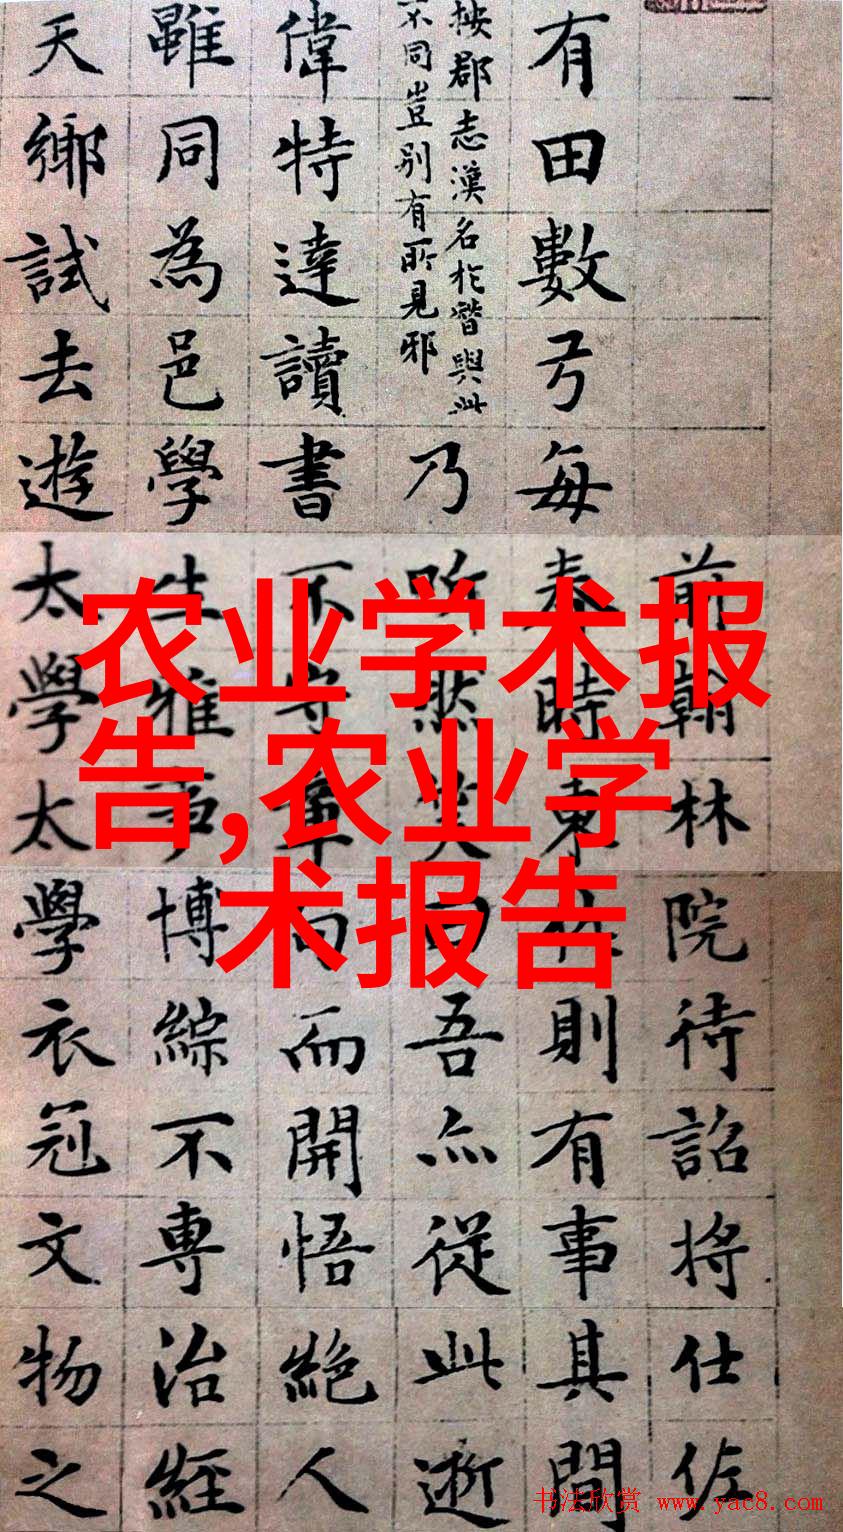 前翰林院待詔將仕佐
有田數弓每春時東作則有事其間
按郡志漢名於潛與此
不同豈别有所見邪
乃听然笑曰吾亦從此逝
偉特達讀書不守章句而開悟絶人
雖同為邑學生雅博綜不專治經
天鄉試去遊太學太學衣冠文物之
农业学术报
告,农业学
术报告
书法欣赏 www.yac8.com